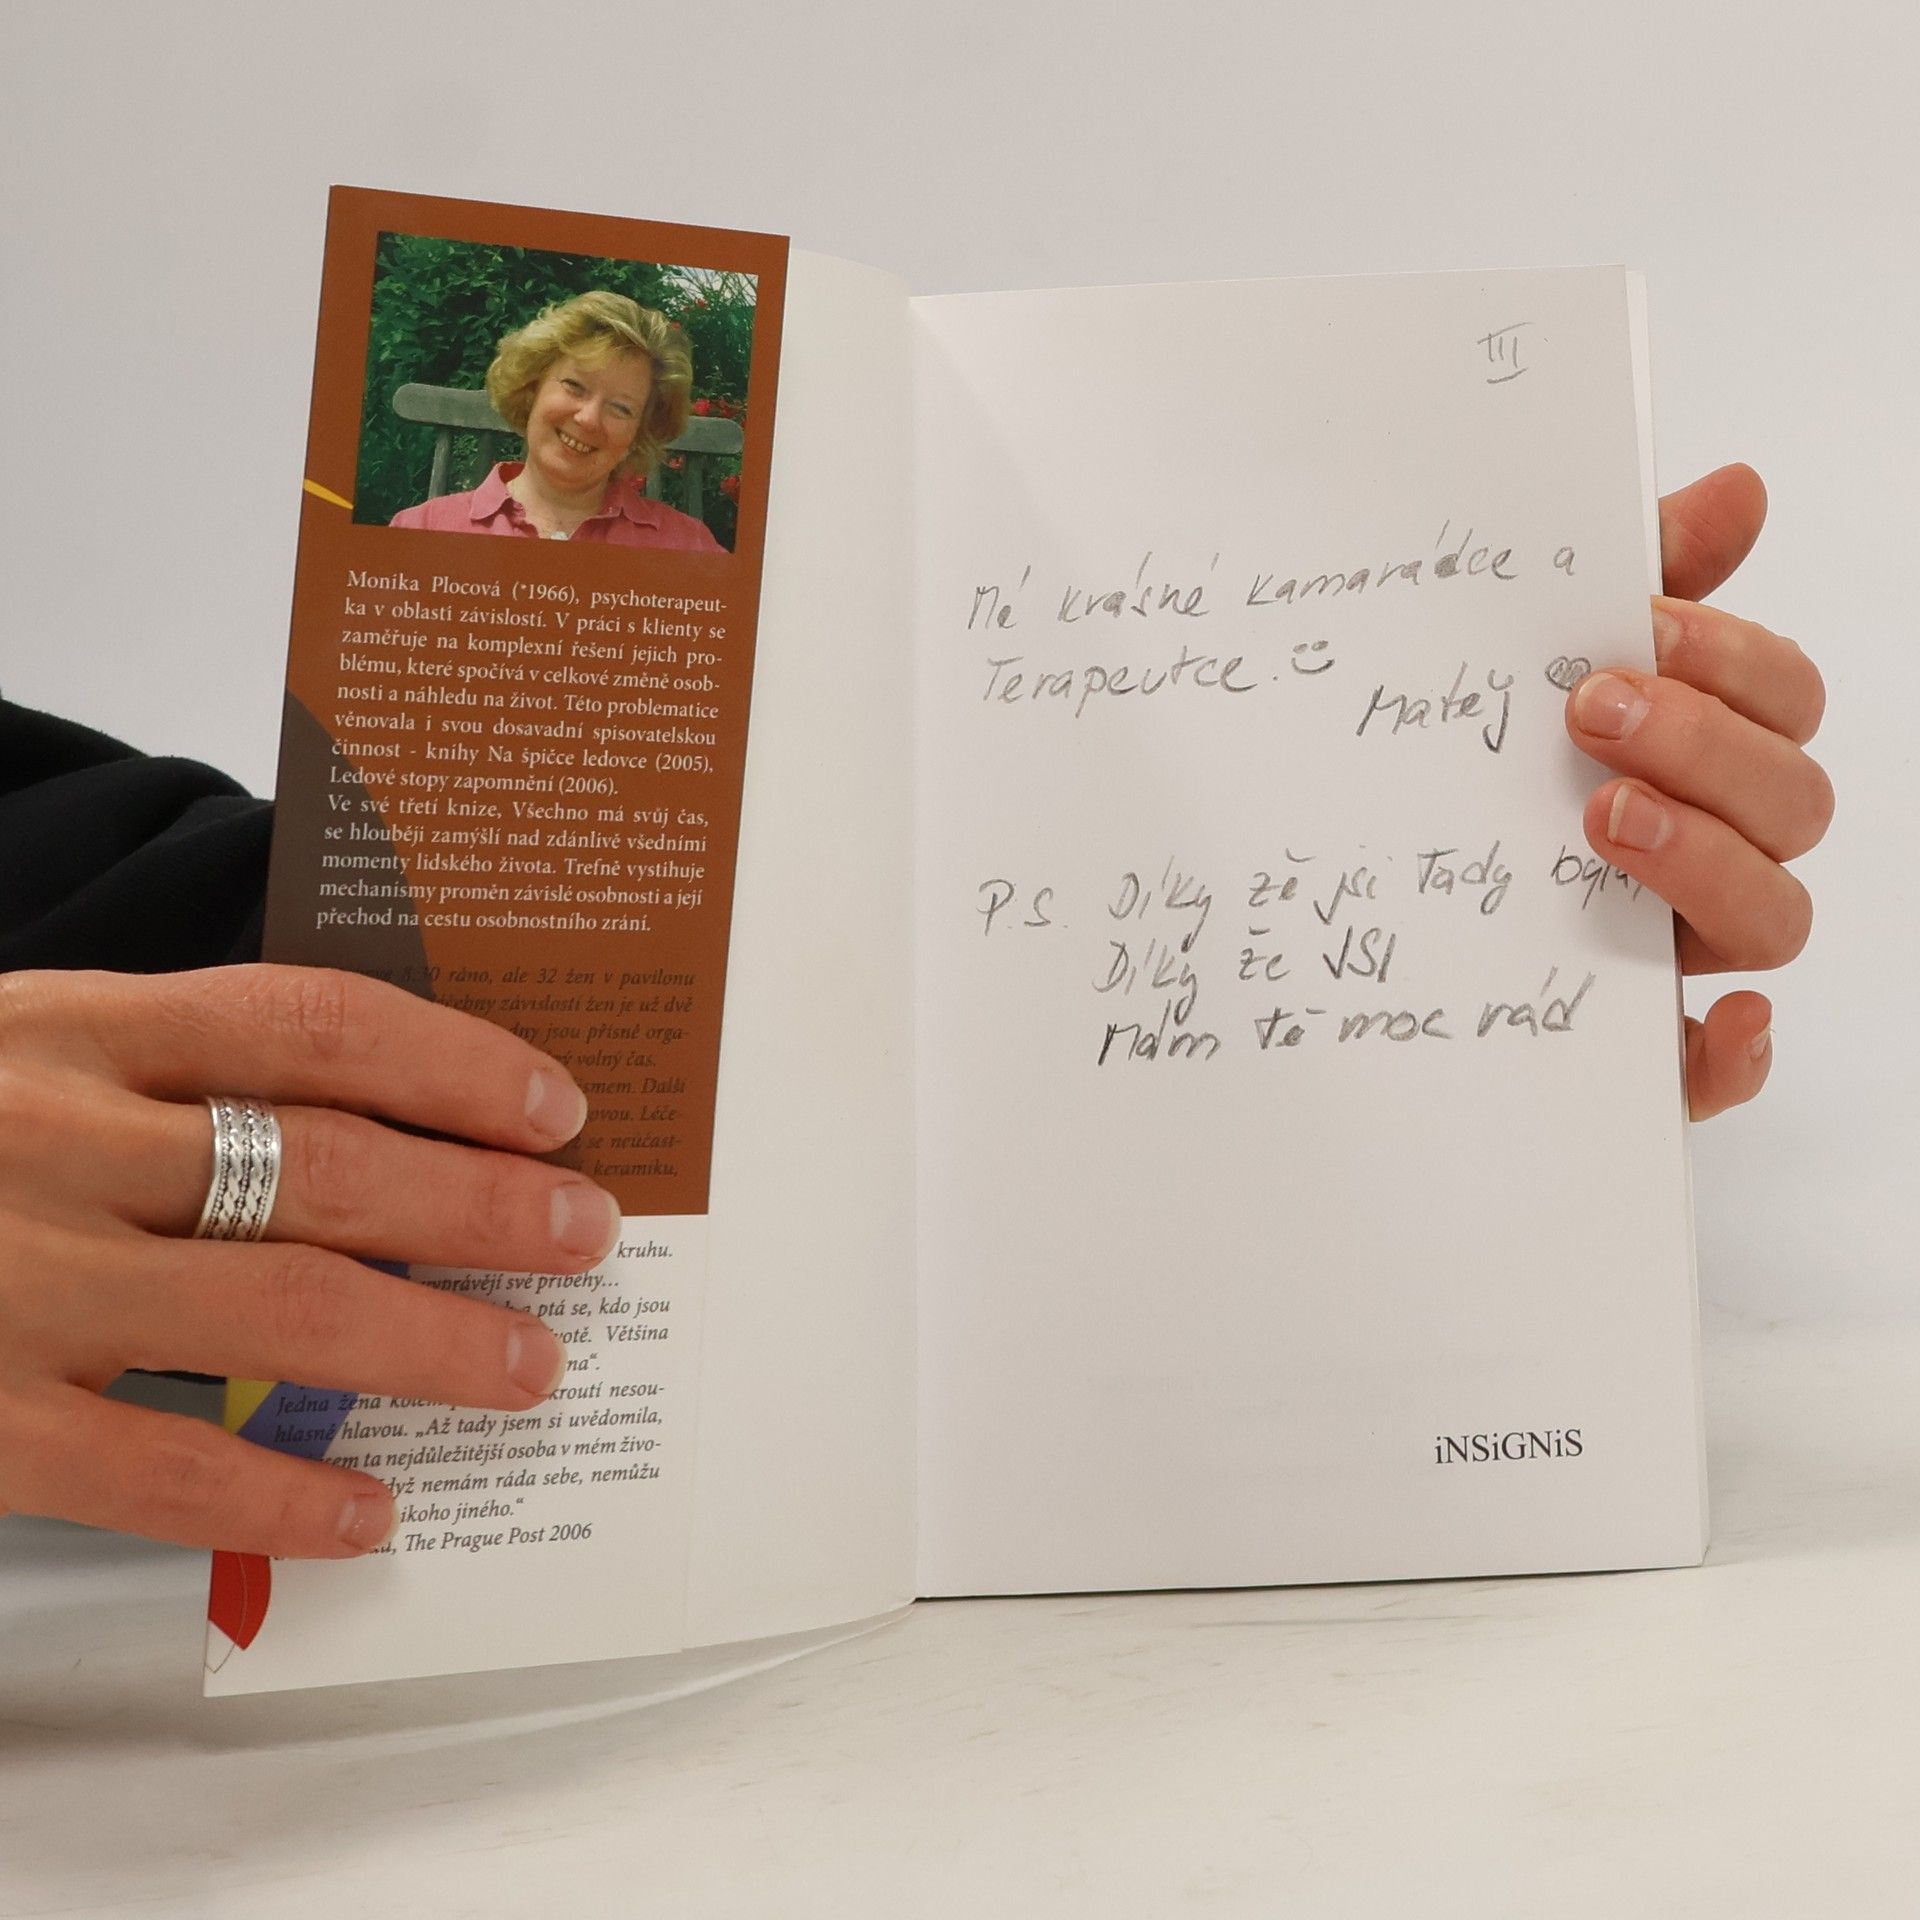 Monika Plocová (*1966), psychoterapeut-
ka v oblasti závislostí. V práci s klienty se
zaměřuje na komplexní řešení jejich pro-
blému, které spočívá v celkové změně osob-
nosti a náhledu na život. Této problematice
věnovala i svou dosavadní spisovatelskou
činnost - knihy Na špičce ledovce (2005),
Ledové stopy zapomnění (2006).
Ve své třetí knize, Všechno má svůj čas,
se hlouběji zamýšlí nad zdánlivě všedními
momenty lidského života. Trefně vystihuje
mechanismy proměn závislé osobnosti a její
přechod na cestu osobnostního zrání.
ráno, ale 32 žen v pavilonu
závislostí žen je už dvě
jsou přísně orga-
volný čas.
Další
Léče-
se neúčast-
keramiku,
kruhu.
vyprávějí své příběhy...
a ptá se, kdo jsou
Většina
na“.
Jedna žena kroutí nesou-
hlasně hlavou. „Až tady jsem si uvědomila,
ta nejdůležitější osoba v mém živo-
nemám ráda sebe, nemůžu
jiného.“
The Prague Post 2006
III
Mé krásné kamarádce a
Terapeutce.
Matěj
P.S. Díky žě jsi tady
Díky že JSI
Mám tě moc rád
iNSiGNiS